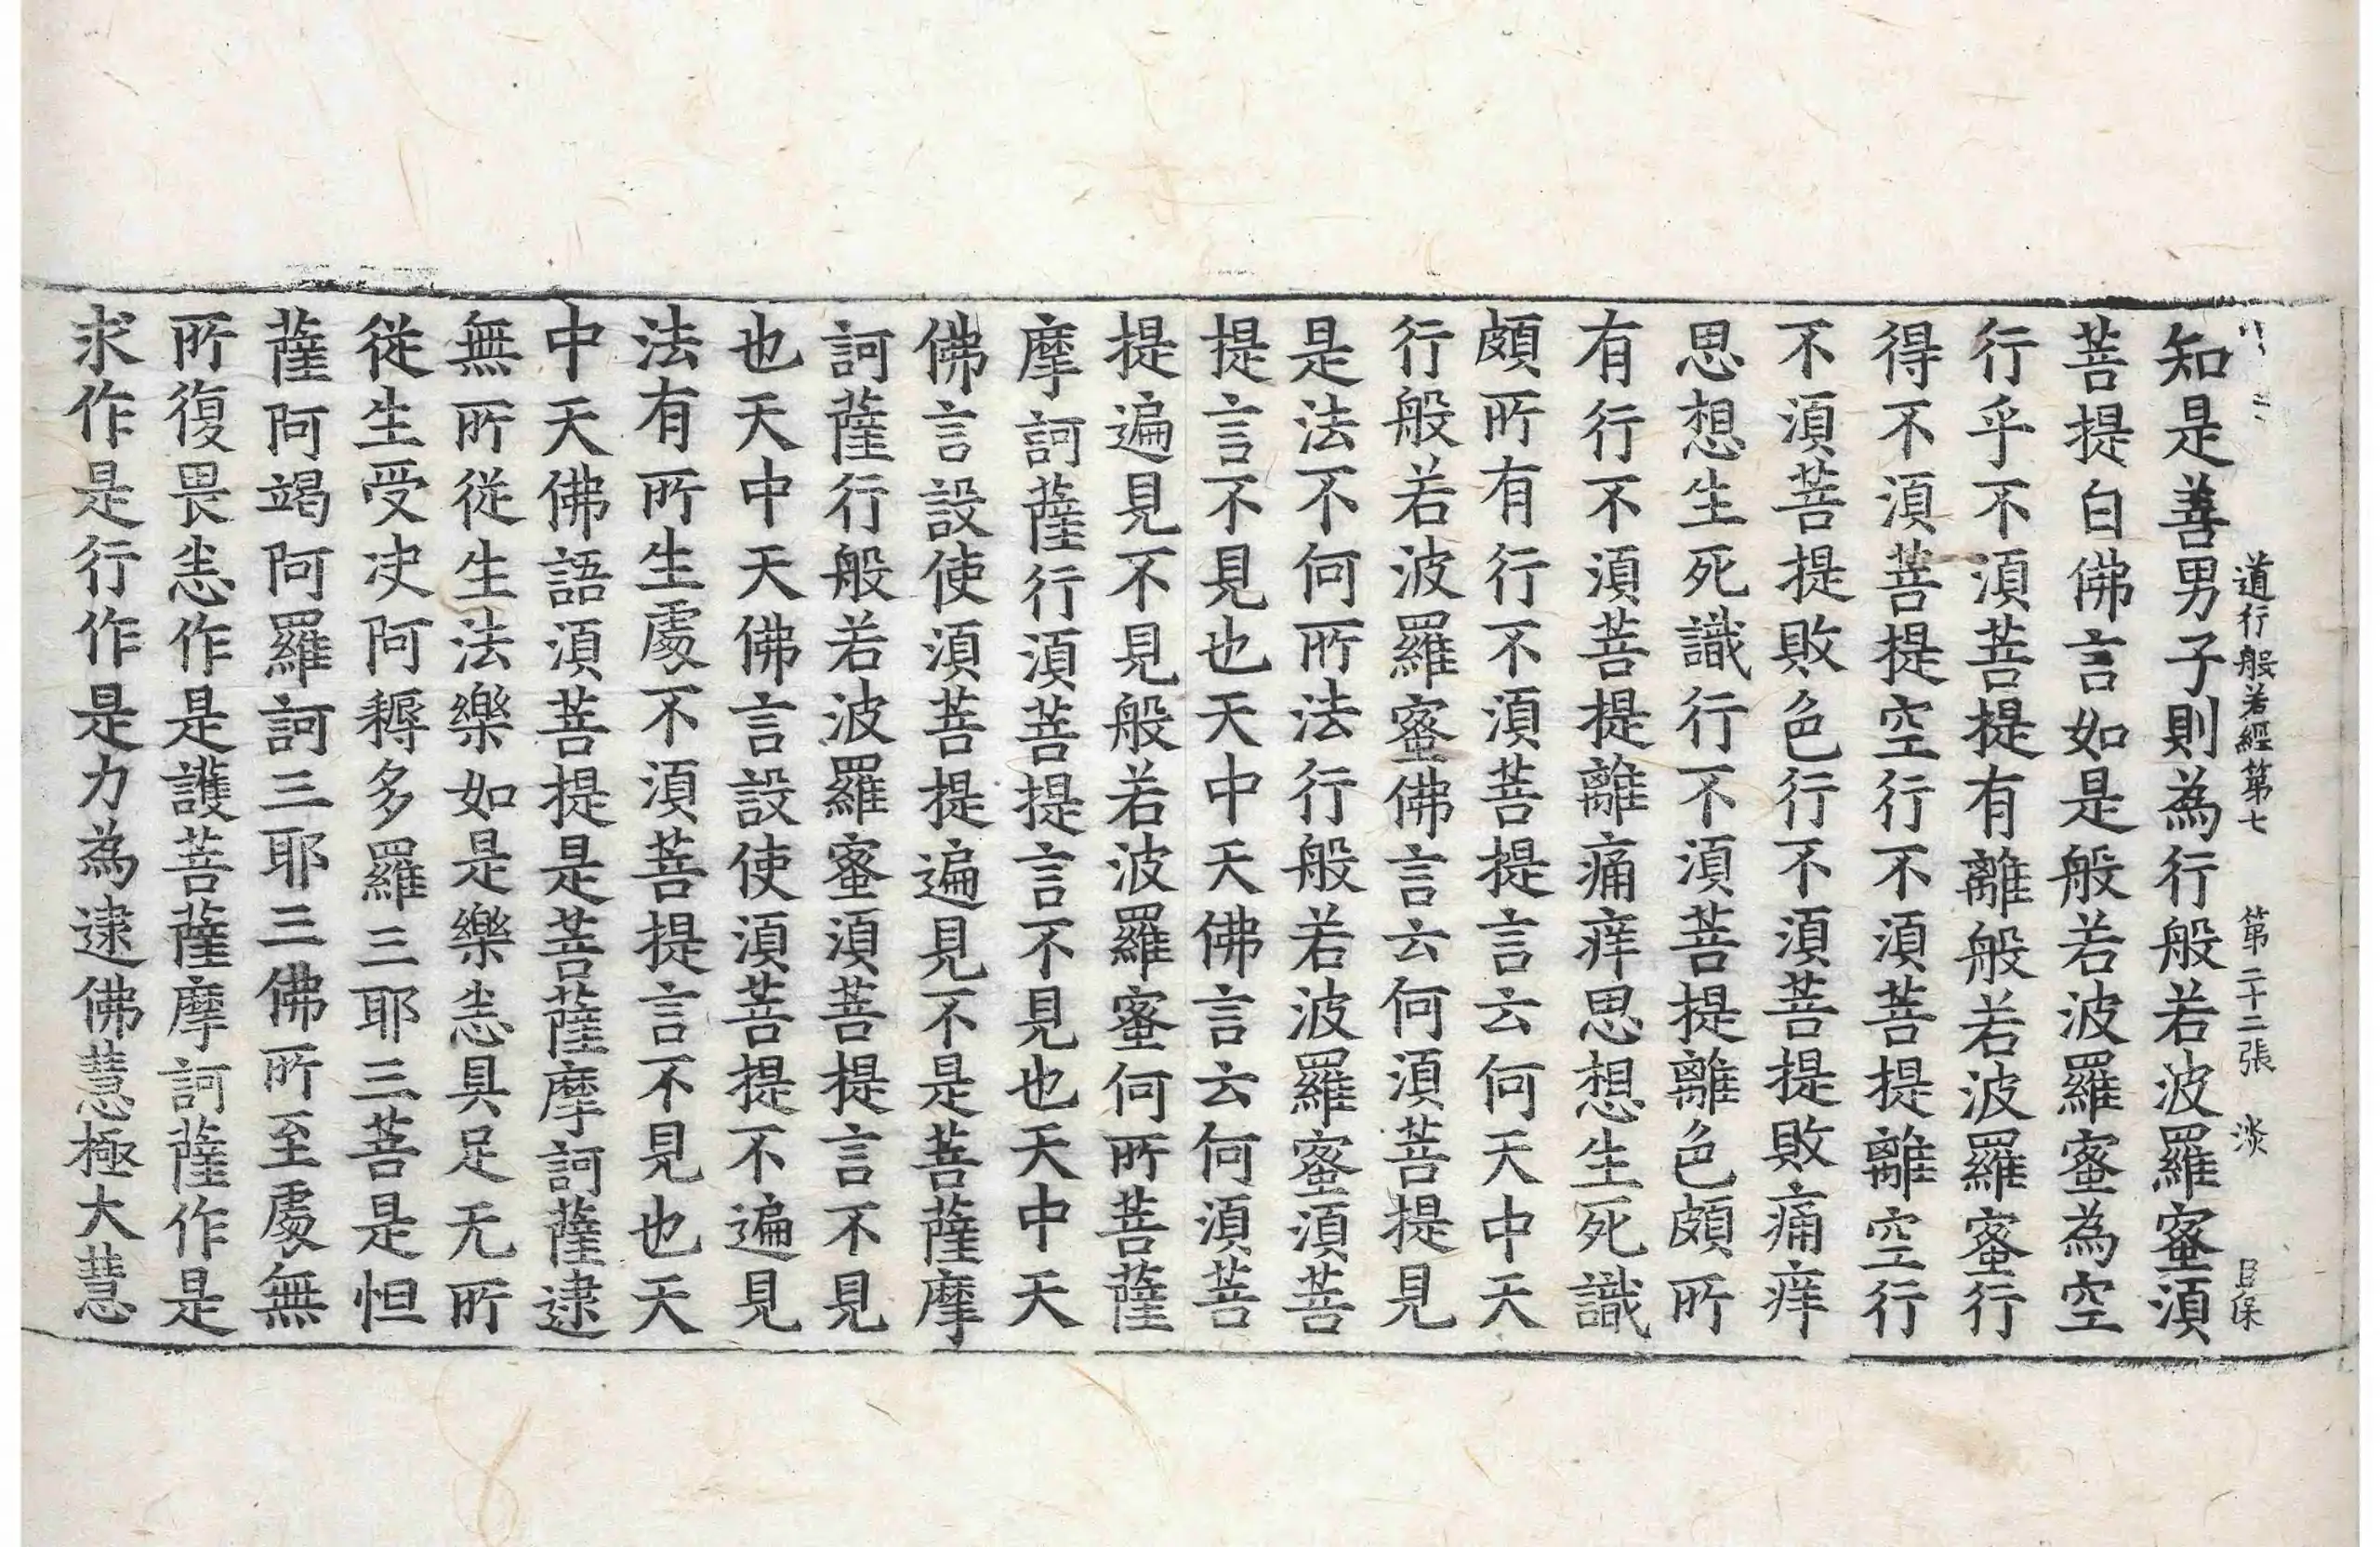 道行般若經第七 第二十二張 淡
知是善男子則為行般若波羅蜜湏
菩提白佛言如是般若波羅蜜為空
行乎不湏菩提有離般若波羅蜜行
得不湏菩提空行不湏菩提離空行
不湏菩提敗色行不湏菩提敗痛痒
思想生死識行不湏菩提離色頗所
有行不湏菩提離痛痒思想生死識
頗所有行不湏菩提言云何天中天
行般若波羅蜜佛言云何湏菩提見
是法不何所法行般若波羅蜜湏菩
提言不見也天中天佛言云何湏菩
提遍見不見般若波羅蜜何所菩薩
摩訶薩行湏菩提言不見也天中天
佛言設使湏菩提遍見不是菩薩摩
訶薩行般若波羅蜜湏菩提言不見
也天中天佛言設使湏菩提不遍見
法有所生處不湏菩提言不見也天
中天佛語湏菩提是菩薩摩訶薩逮
無所從生法樂如是樂恙具足无所
從生受决阿耨多羅三耶三菩是怛
薩阿竭阿羅訶三耶三佛所至處無
所復畏恙作是護菩薩摩訶薩作是
求作是行作是力為逮佛慧極大慧